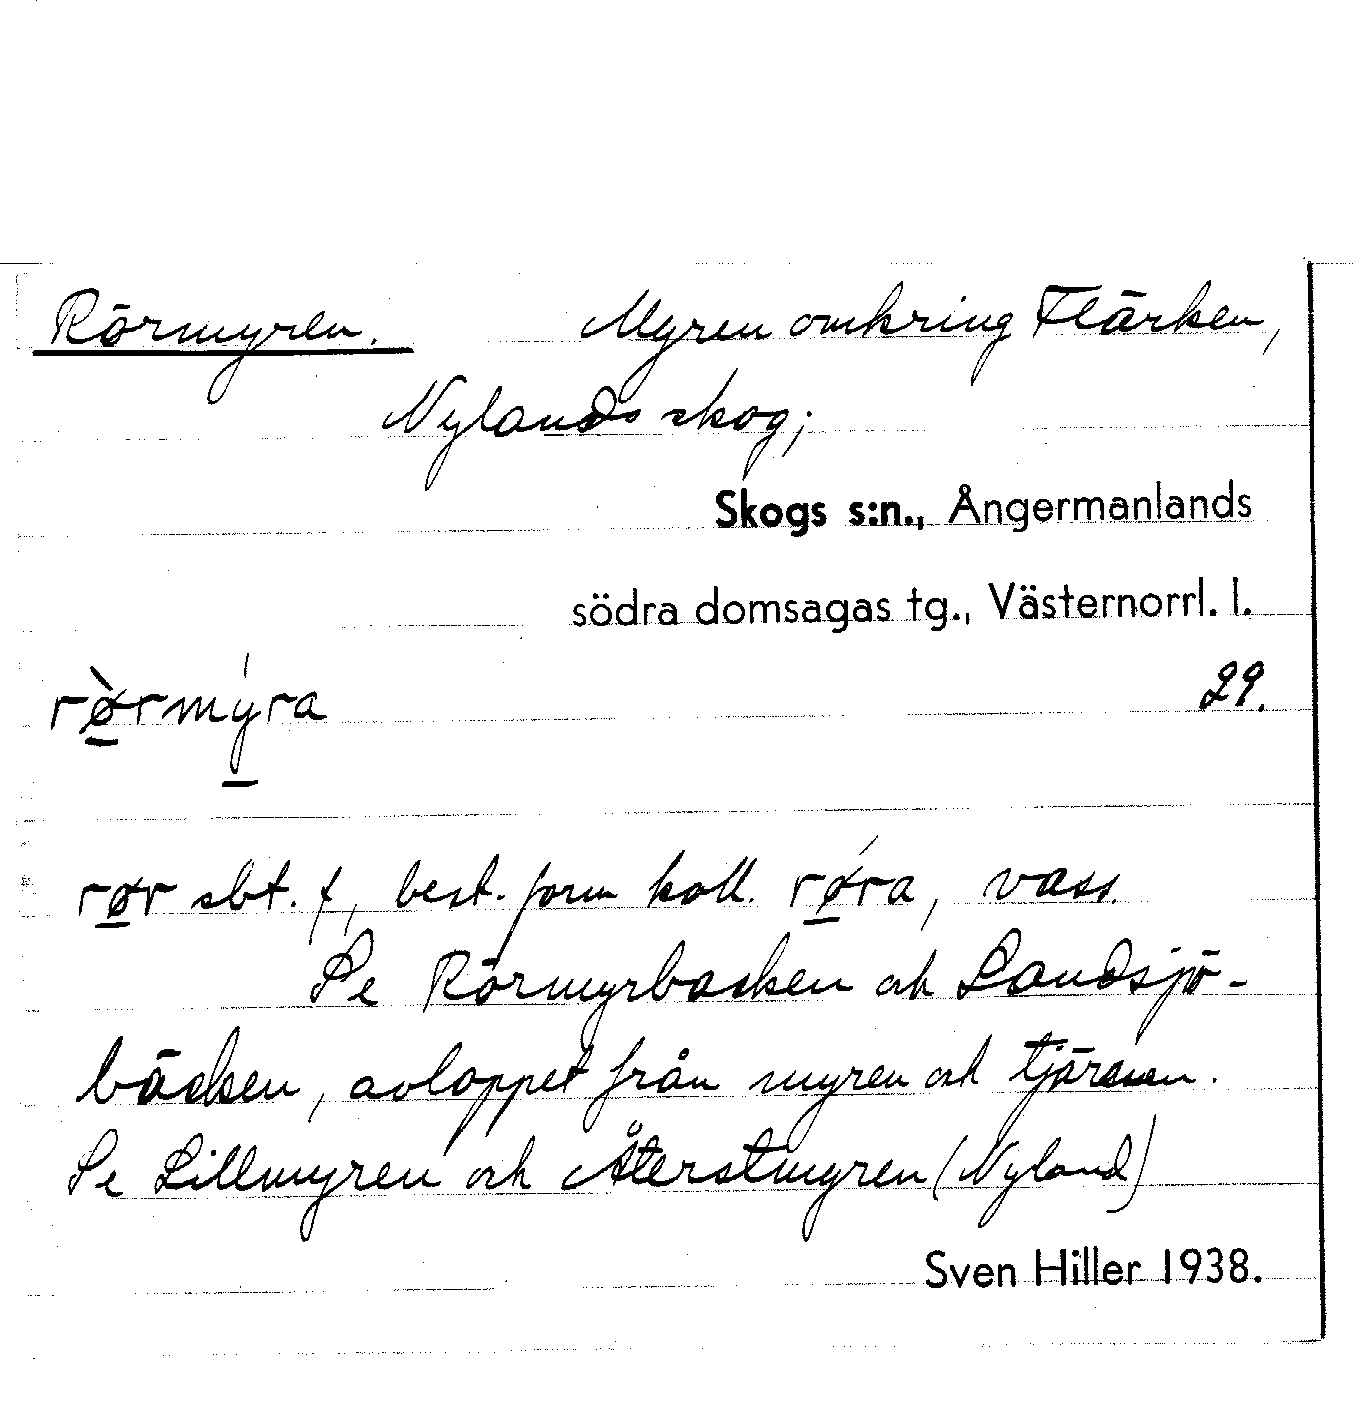 Rörmyren. Myren omkring Flärken,
Nylands skog;
Skogs s:n., Ångermanlands
södra domsagas tg., Västernorrl. l.
rø̀rmýra 29.
rør sbt. f, best. form koll. rǿra, vass.
Se Rörmyrbacken och Landsjö-
bäcken, avloppet från myren och tjärnen.
Se Lillmyren och Återstmyren (Nyland)
Sven Hiller 1938.